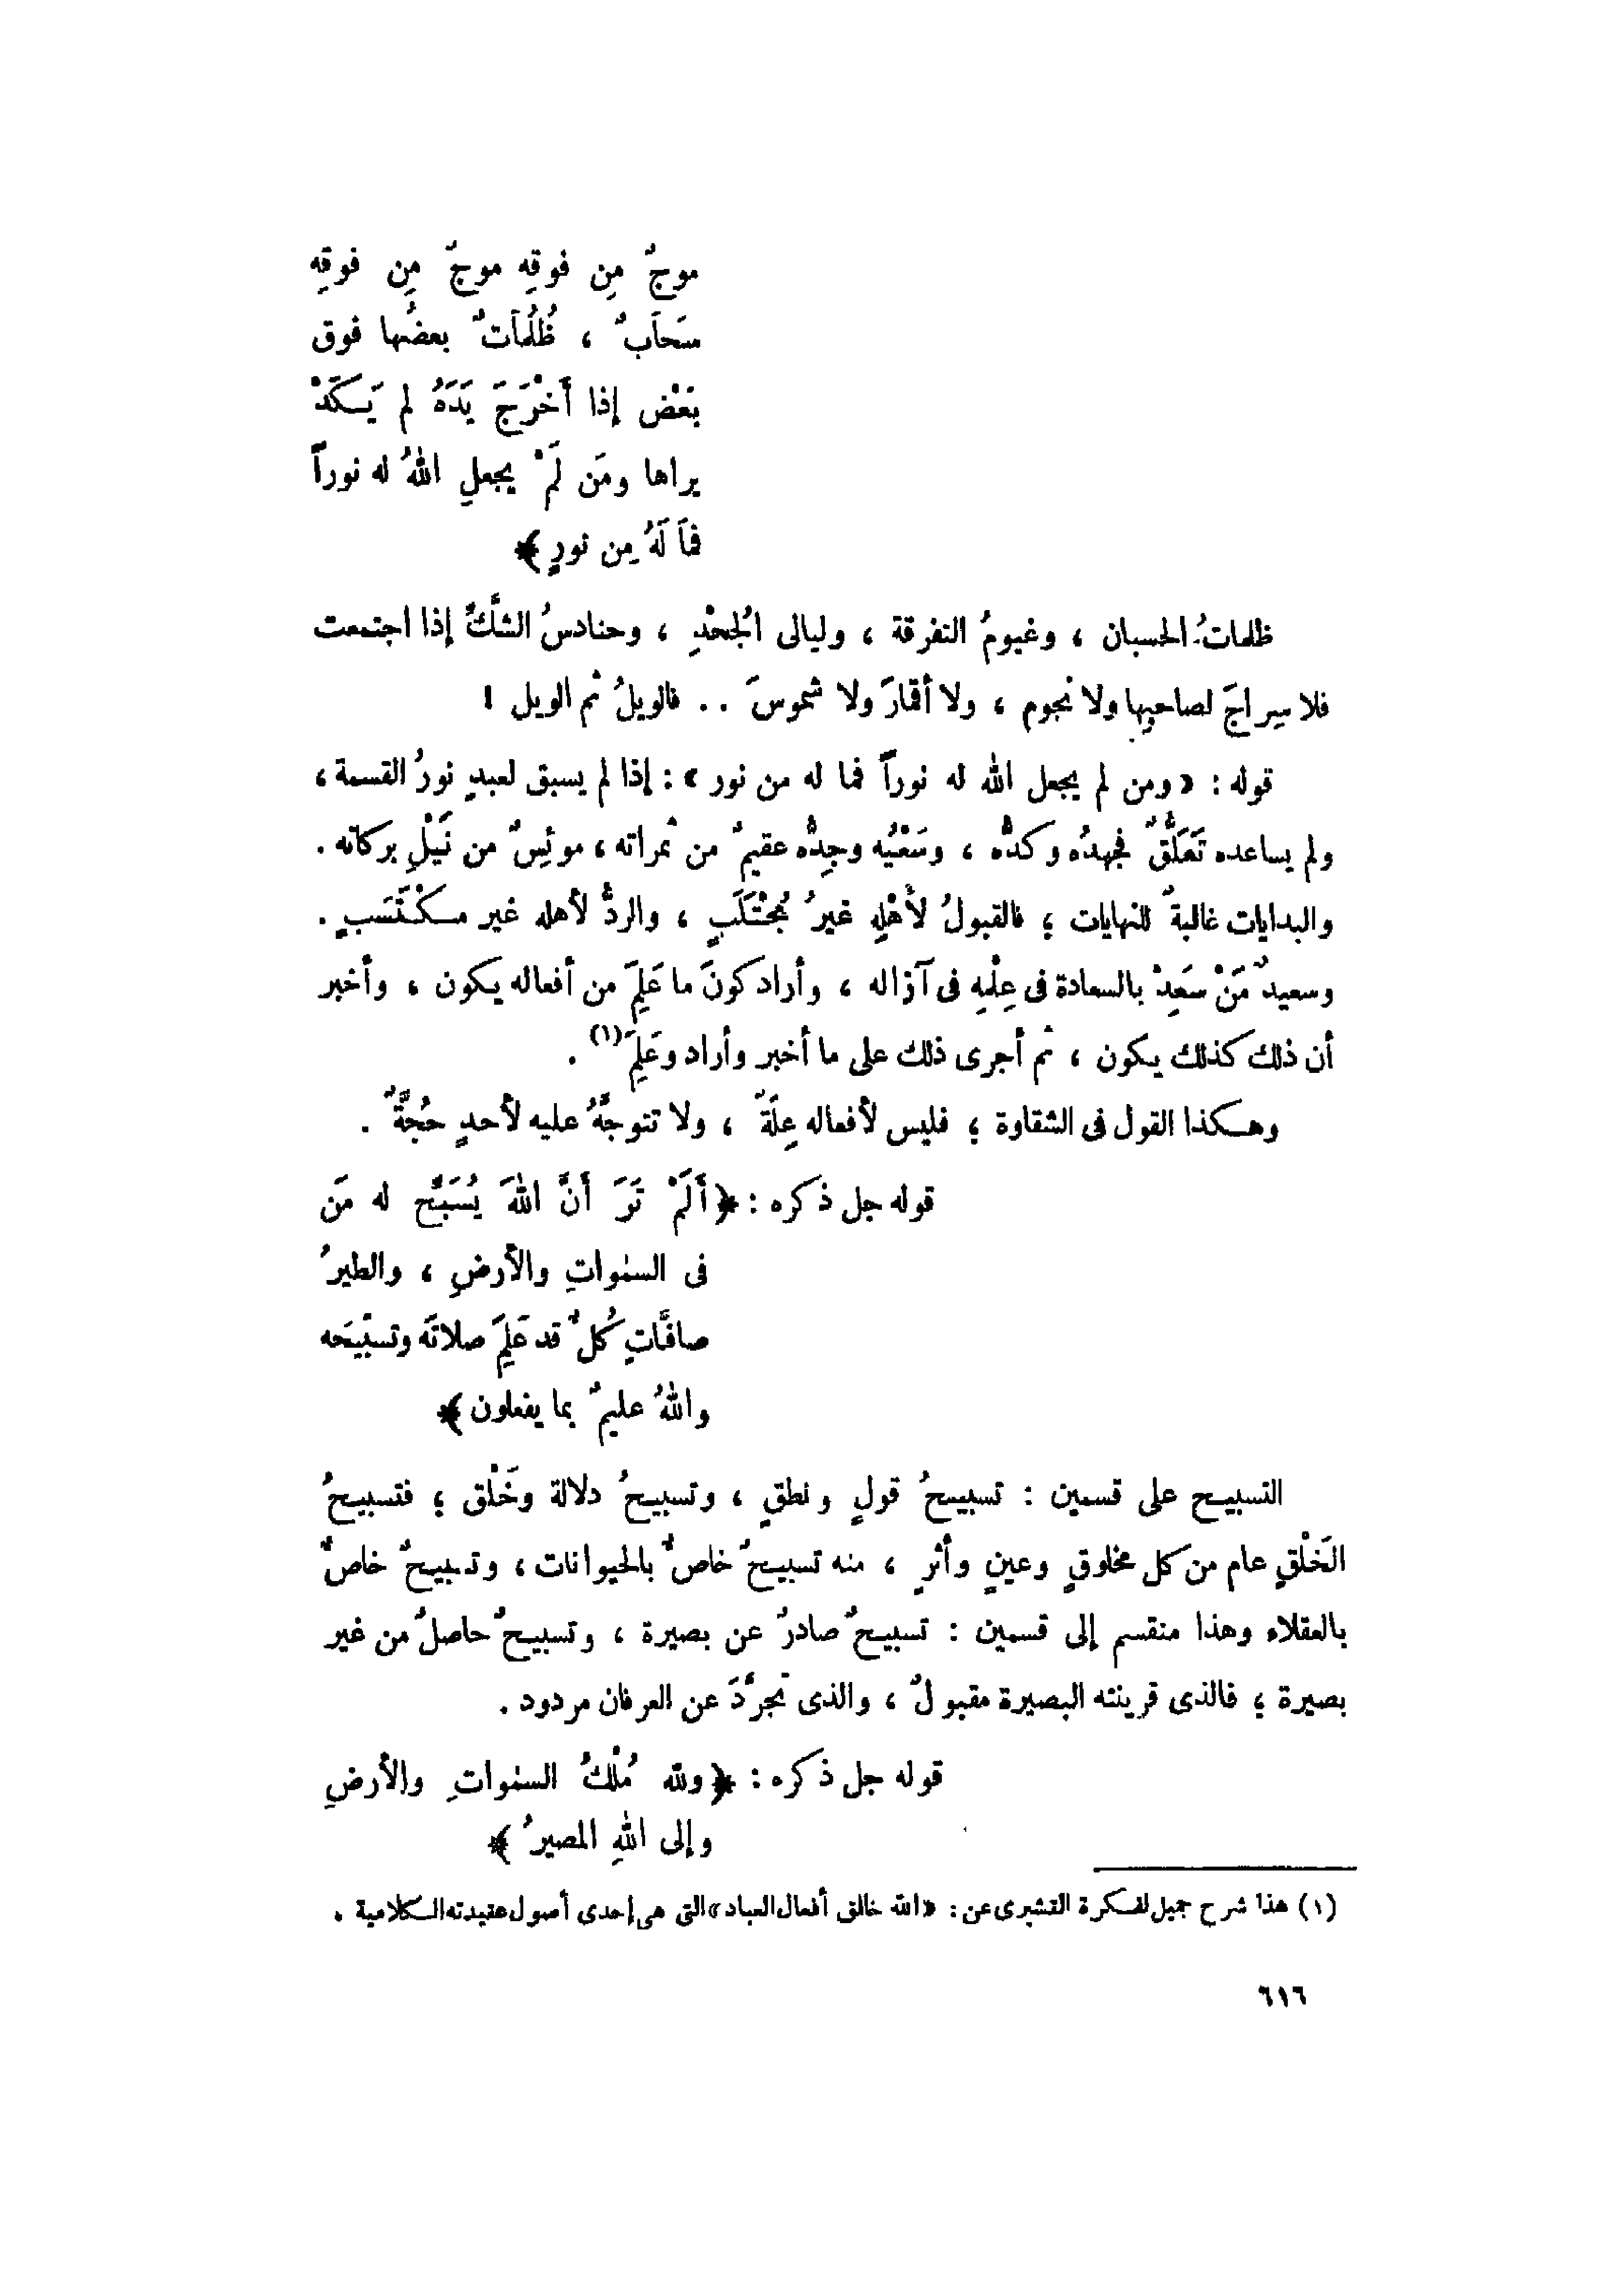 موجٌ مِن فوقِه موجٌ مِن فوقِه
سَحَابٌ ، ظُلُمَاتٌ بعضُها فوق
بَعْض إذا أَخْرَجَ يَدَهُ لم يَكَدْ
يراها ومَن لَمْ يجعلِ اللهُ له نوراً
فمَا لَهُ مِن نورٍ ﴾
ظلماتُ الحسبان ، وغيومُ التفرقة ، وليالى الجُحْدِ ، وحنادسُ الشَّكِّ إذا اجتمعت
فلا سِراجَ لصاحبِها ولا نجوم ، ولا أقمارَ ولا شموسَ .. فالويلُ ثم الويل !
قوله : « ومن لم يجعل الله له نوراً فما له من نور » : إذا لم يسبق لعبدٍ نورُ القسمة ،
ولم يساعده تَعَلُّقٌ فجهدُه وكدُّه ، وسَعْيُه وجِدُّه عقيمٌ من ثمراته ، موئِسٌ من نَيْلِ بركاته .
والبدايات غالبةٌ للنهايات ؛ فالقبولُ لأَهْلِه غيرُ مُجْتَلَبٍ ، والردُّ لأهله غير مكْتَسَبٍ .
وسعيدٌ مَنْ سَعِدْ بالسعادة فى عِلْمِه فى آزاله ، وأراد كونَ ما عَلِمَ من أفعاله يكون ، وأخبر
أن ذلك كذلك يكون ، ثم أجرى ذلك على ما أخبر وأراد وعَلِمَ(١) .
وهكذا القول فى الشقاوة ؛ فليس لأفعاله عِلَّةٌ ، ولا تتوجَّهُ عليه لأحدٍ حُجَّةٌ .
قوله جل ذكره : ﴿ أَلَمْ تَرَ أَنَّ اللهَ يُسَبِّح له مَن
فى السمٰواتِ والأرضِ ، والطيرُ
صافَّاتٍ كُلٌّ قد عَلِمَ صلاتَه وتسبيحَه
واللهُ عليمٌ بما يفعلون ﴾
التسبيح على قسمين : تسبيحُ قولٍ ونطقٍ ، وتسبيحُ دلالة وخَلْق ؛ فتسبيحُ
الخَلْقِ عام من كل مخلوقٍ وعينٍ وأثرٍ ، منه تسبيحٌ خاصٌّ بالحيوانات ، وتسبيحٌ خاصٌّ
بالعقلاء وهذا منقسم إلى قسمين : تسبيحٌ صادرٌ عن بصيرة ، وتسبيحٌ حاصلٌ من غير
بصيرة ؛ فالذى قرينته البصيرة مقبولٌ ، والذى تجرَّدَ عن العرفان مردود .
قوله جل ذكره : ﴿ ولله مُلْكُ السمٰواتِ والأرضِ
وإلى اللهِ المصيرُ ﴾
(١) هذا شرح جميل لفكرة القشيرى عن : « الله خالق أفعال العباد » التى هى إحدى أصول عقيدته الكلامية .
٦١٦